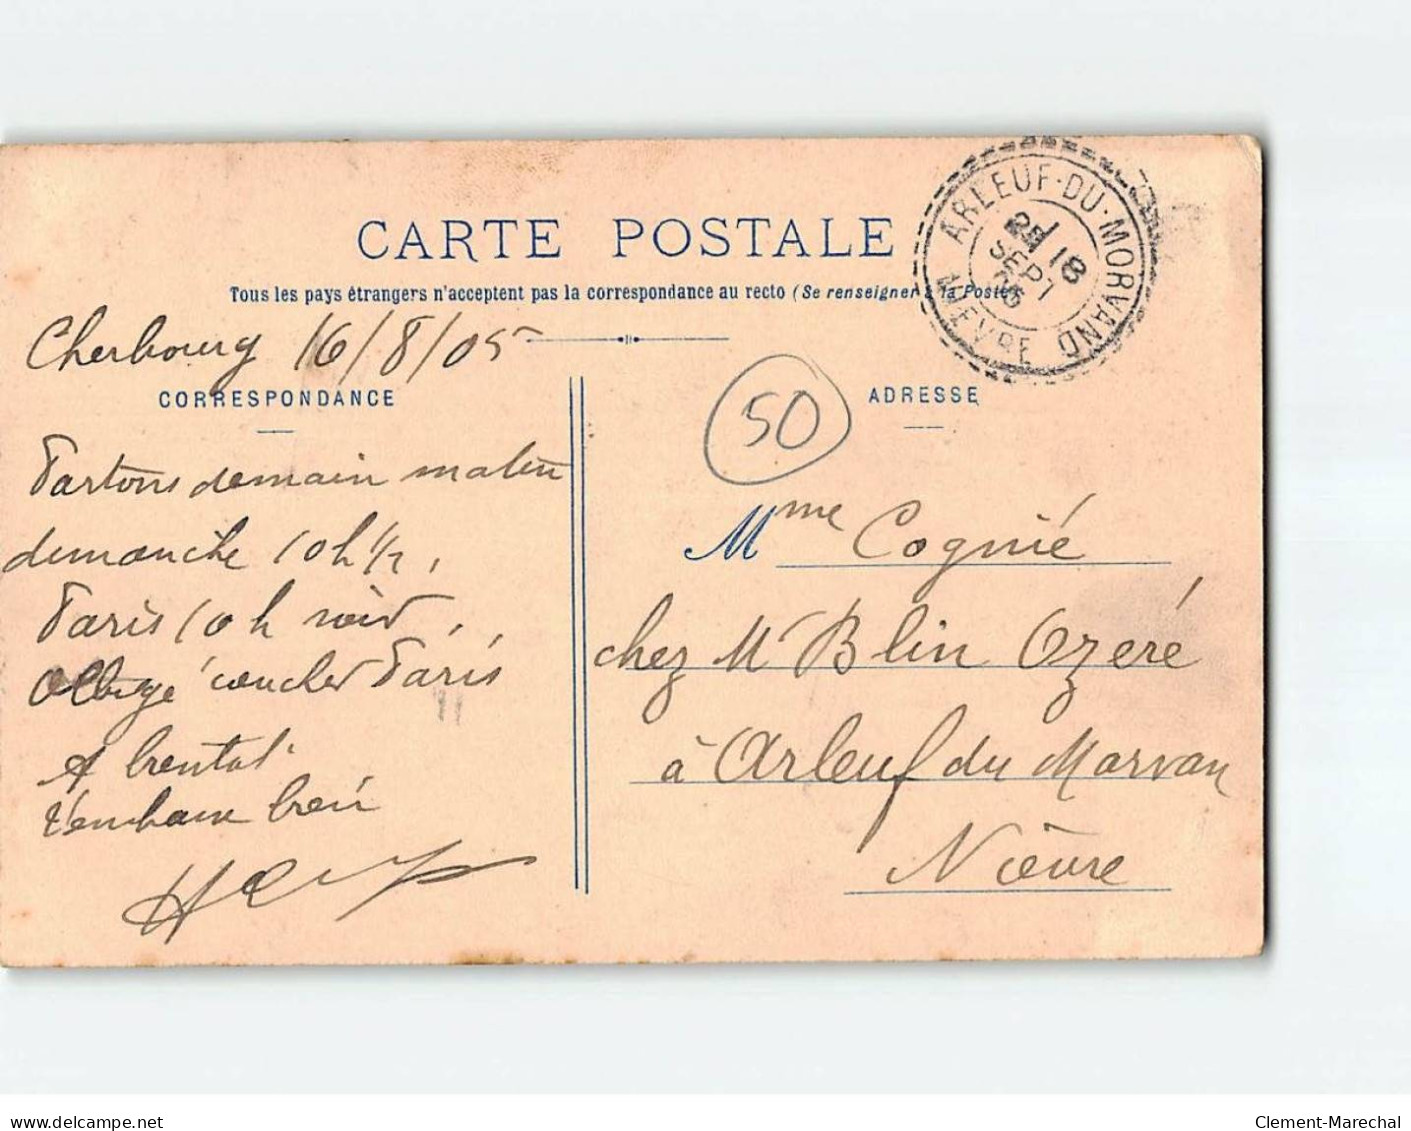 CARTE POSTALE
Tous les pays étrangers n'acceptent pas la correspondance au recto (Se renseigner à la Poste)
ARLEUF-DU-MORVAND
18
SEPT
05
NIEVRE
Cherbourg 16/8/05
CORRESPONDANCE
Partons demain matin
dimanche 10h 1/2,
Paris 10h soir,
Obligé coucher Paris
A bientot
t'embrasse bien
50
ADRESSE
Mme Cognié
chez Mr Blin Ozeré
à Arleuf du Morvan
Nièvre
www.delcampe.net
Clement-Marechal